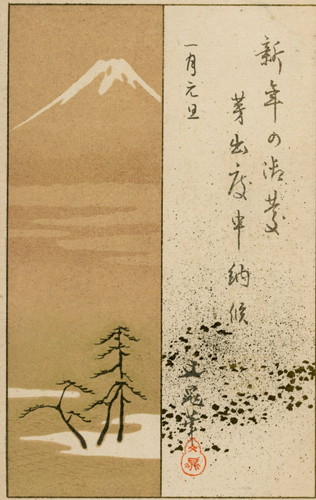 新年の御慶
芽出度申納候
一月元旦